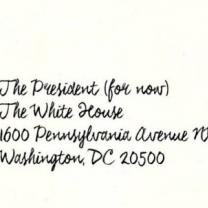 The President (for now)
The White House
1600 Pennsylvania Avenue N
Washington, DC 20500